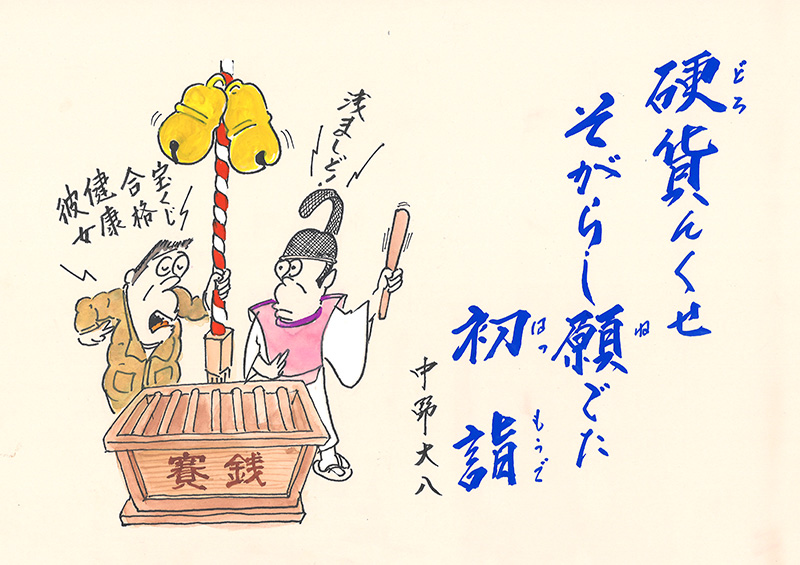 硬貨んくせ
どろ
そがらし願でた
ね
初詣
はつ
もうで
中野大八
浅ましど!
宝くじ
合格
健康
彼女
賽銭